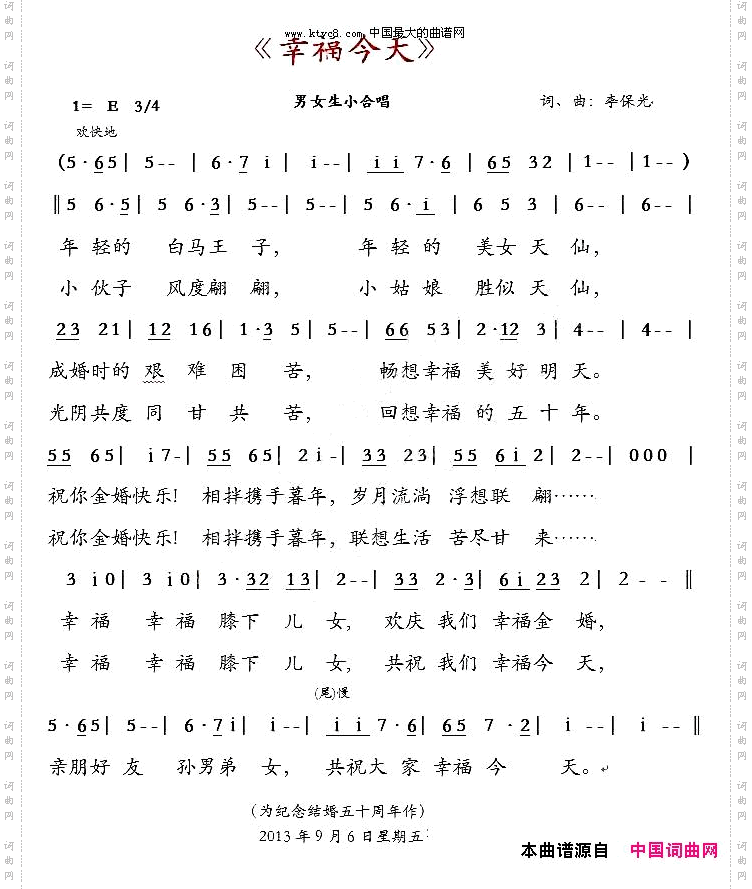 www.ktvc8.com 中国最大的曲谱网
《幸福今天》
1= E 3/4 男女生小合唱 词、曲：李保光
欢快地
(5·65| 5-- | 6·7 i| i--| i i 7·6 | 65 32 |1-- |1-- )
‖5 6·5| 5 6·3| 5--| 5--| 5 6·i | 6 5 3| 6-- | 6-- |
年 轻的 白马王 子， 年 轻 的 美女 天 仙，
小 伙子 风度翩 翩， 小 姑 娘 胜似 天 仙，
23 21| 12 16| 1·3 5| 5--| 66 53| 2·12 3| 4-- | 4-- |
成婚时的 艰 难 困 苦， 畅想幸福 美 好 明 天。
光阴共度 同 甘 共 苦， 回想幸福 的 五 十 年。
55 65| i7-| 55 65| 2i-| 33 23| 55 6i2| 2--|000 |
祝你金婚快乐! 相拌携手暮年，岁月流淌 浮想联 翩……
祝你金婚快乐! 相拌携手暮年，联想生活 苦尽甘 来……
3 i0| 3 i0| 3·32 13| 2--| 33 2·3| 6i 23 2| 2 - - ‖
幸 福 幸 福 膝下 儿 女， 欢庆 我们 幸福金 婚，
幸 福 幸 福 膝下 儿 女， 共祝 我们 幸福今 天，
(尾)慢
5·65| 5--| 6·7i| i--| i i 7·6| 65 7·2| i --| i --‖
亲朋好 友 孙男弟 女， 共祝大 家 幸福 今 天。
（为纪念结婚五十周年作）
2013年9月6日星期五
本曲谱源自 中国词曲网
词曲网